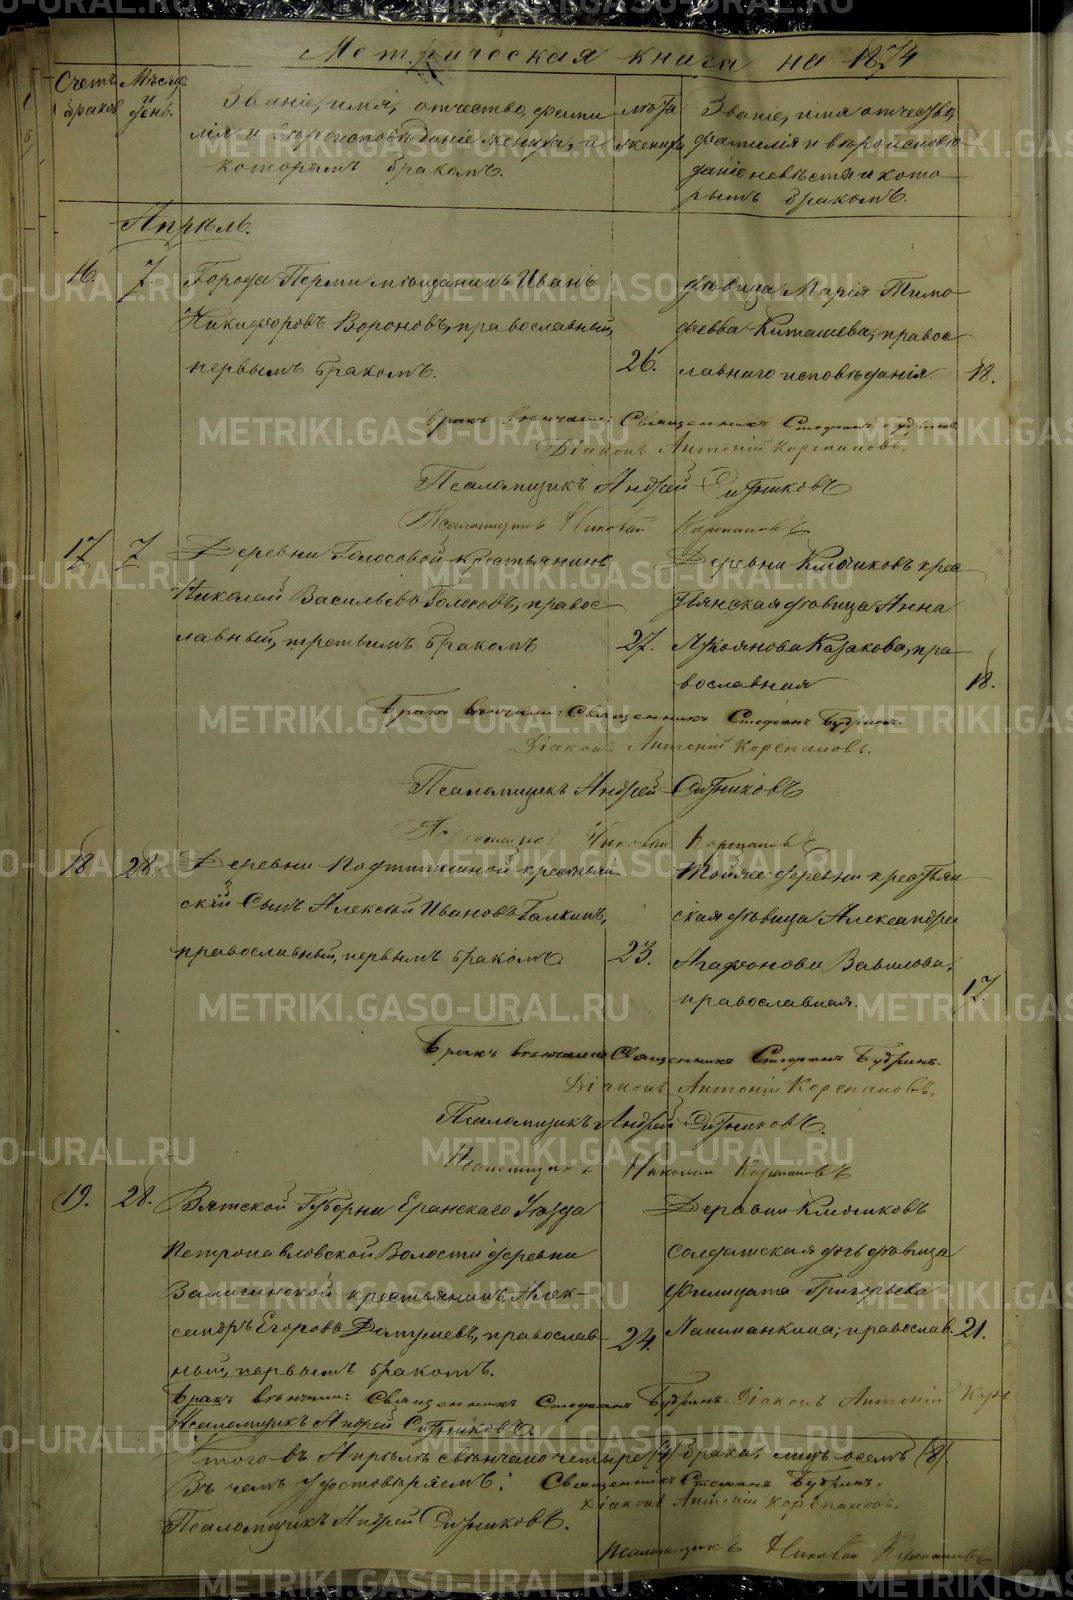 Метрическая книга на 1874
Счетъ браковъ
Мѣсяцъ и день.
Званіе, имя, отчество, фами
лія и вѣроисповѣданіе жениха, и
которымъ бракомъ.
лѣта
жениха
Званіе, имя отчество,
фамилія и вѣроисповѣ
даніе невѣсты и кото
рымъ бракомъ.
Апрѣль.
16. 7. Города Перми мѣщанинъ Иванъ
Никифоровъ Вороновъ, православный,
первымъ бракомъ. 26.
дѣвица Марія Тимо
феевва Киташева, правос
лавнаго исповѣданія. 18.
Бракъ вѣнчали: Священникъ Стефанъ Будринъ.
Діаконъ Антоній Корепановъ.
Псаломщикъ Андрей Ситниковъ
Псаломщикъ Николай Корепановъ
17 7 Деревни Голосовой крестьянинъ
Николай Васильевъ Голосовъ, правос
лавный, третьимъ бракомъ 27.
Деревни Ключиковъ крес
тьянская дѣвица Анна
Лукоянова Казакова, пра
вославная 18.
Бракъ вѣнчали: Священникъ Стефанъ Будринъ.
Діаконъ Антоній Корепановъ.
Псаломщикъ Андрей Ситниковъ
Псаломщикъ Николай Корепановъ
18 28. Деревни крестьян
скій Сынъ Алексѣй Ивановъ Галкинъ,
православный, первымъ бракомъ. 23.
Тойже деревни крестьян
ская дѣвица Александра
Агафонова Вавилова,
православная. 17.
Бракъ вѣнчали Священникъ Стефанъ Будринъ.
Діаконъ Антоній Корепановъ.
Псаломщикъ Андрей Ситниковъ.
Псаломщикъ Николай Корепановъ
19. 28. Вятской Губерни Еранскаго Уѣзда
Петропавловской Волости деревни
крестьянинъ Алек-
сандръ Егоровъ православ-
ный, первымъ бракомъ. 24.
Деревни Ключиковъ
солдатская дочь дѣвица
Филицата Григорьева
православ. 21.
Бракъ вѣнчали: Священникъ Стефанъ Будринъ. Діаконъ Антоній Коре
Псаломщикъ Андрей Ситниковъ.
Итого въ Апрѣлѣ свѣнчано четыре (4) брака, лицъ осемь (8).
Въ чемъ удостовѣряемъ: Священникъ Стефанъ Будринъ.
Діаконъ Антоній Корепановъ.
Псаломщикъ Андрей Ситниковъ.
Псаломщикъ Николай Корепановъ
METRIKI.GASO-URAL.RU